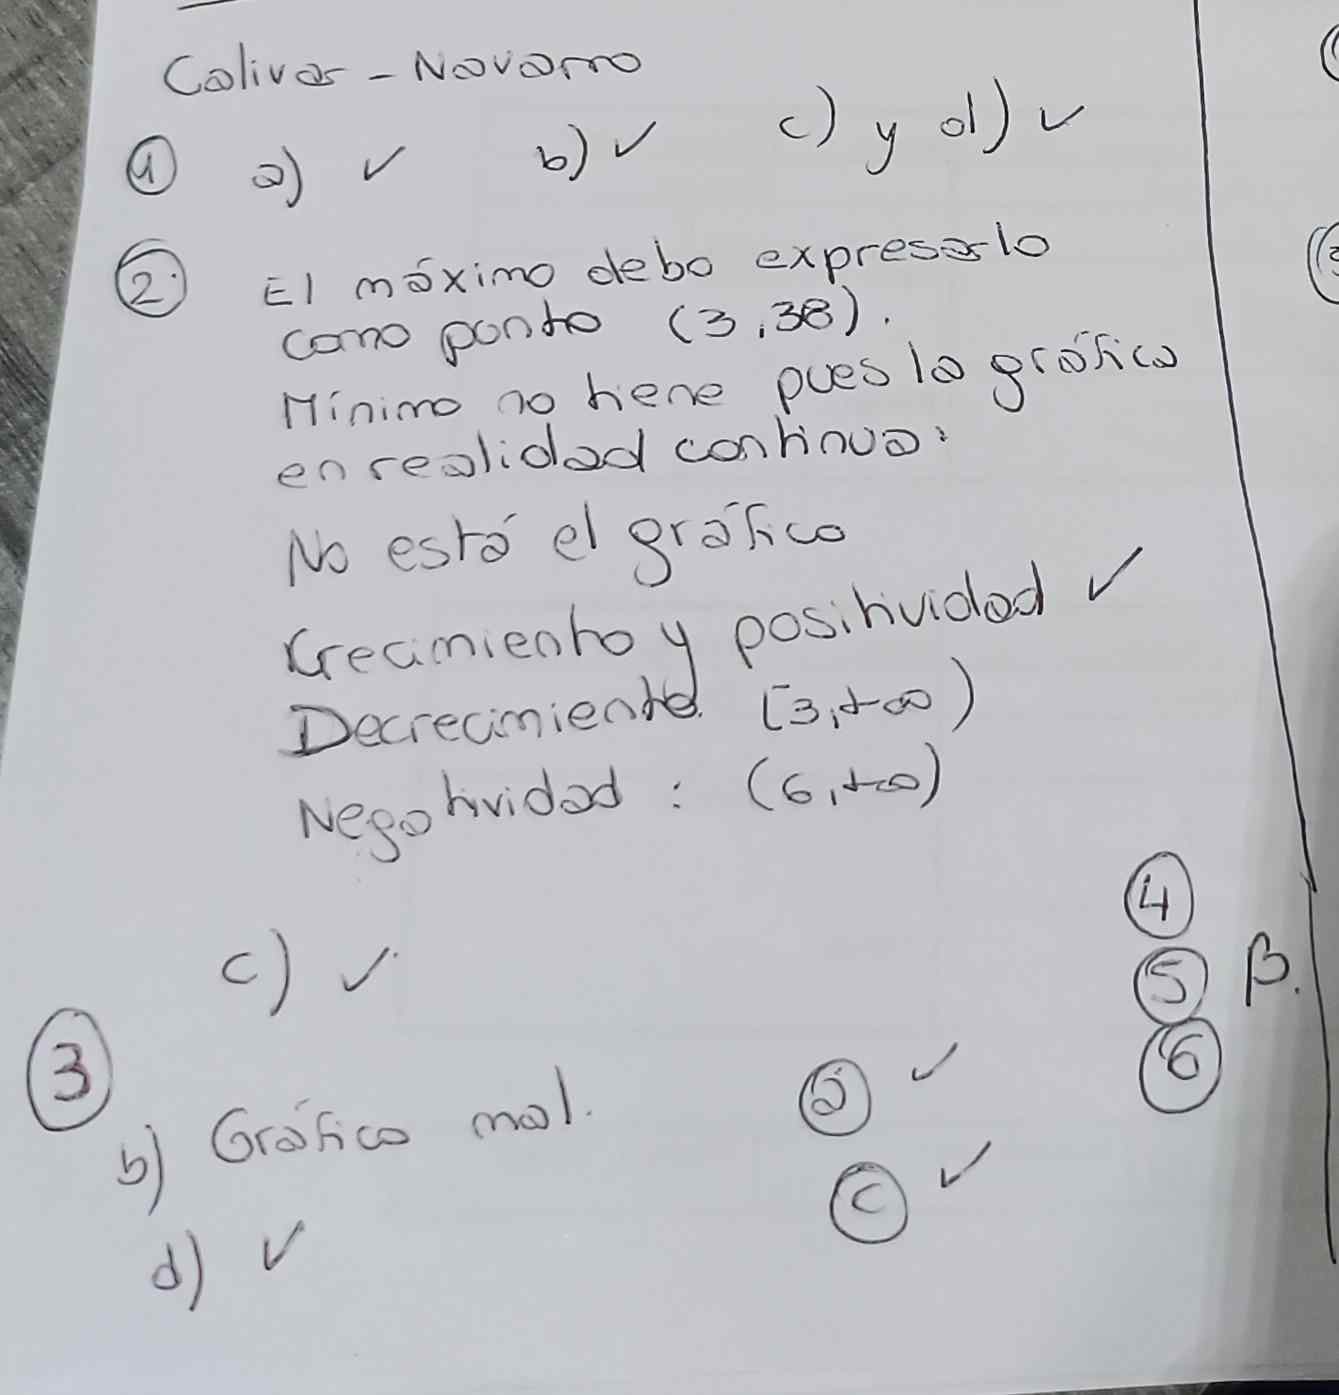 Colivar - Navarro
① a) ✓ b) ✓ c) y d) ✓
② El máximo debo expresarlo
como punto (3,38).
Mínimo no tiene pues la gráfica
en realidad continua.
No está el gráfico
Crecimiento y positividad ✓
Decrecimiento. [3,+∞)
Negatividad : (6,+∞)
c) ✓
③
b) Gráfico mal.
d) ✓
ⓐ ✓
ⓒ ✓
④
⑤ B.
⑥